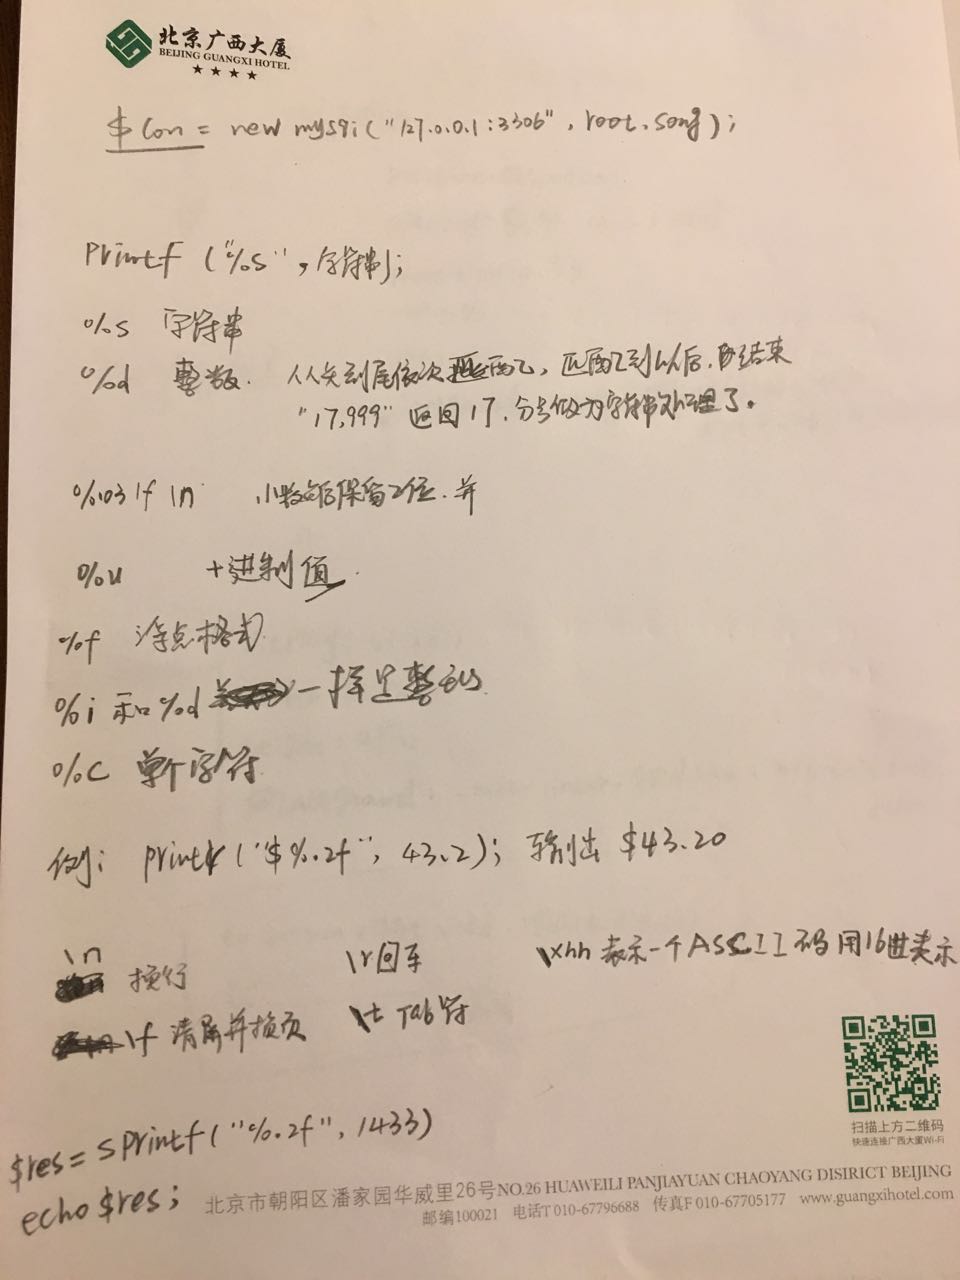 北京广西大厦
BEIJING GUANGXI HOTEL
★★★★
$con = new mysqi("127.0.0.1:3306", root, song);
printf ("%s", 字符串);
%s 字符串
%d 整数. 从头到尾依次匹配, 匹配到以后, 结束
"17,999" 返回17, 分号做为字符串处理了。
小数点后保留2位. 并
%u 十进制值.
%f 浮点格式.
%i 和%d 一样是整
%c 单个字符.
例: printf ("$%.2f", 43.2); 输出 $43.20
\n 换行 \r回车 \xhh 表示一个ASCII码 用16进表示
\f 清屏并换页 \t Tab符
$res = sprintf("%.2f", 1433)
echo $res;
扫描上方二维码
快速连接广西大厦Wi-Fi
北京市朝阳区潘家园华威里26号NO.26 HUAWEILI PANJIAYUAN CHAOYANG DISIRICT BEIJING
邮编100021 电话T 010-67796688 传真F 010-67705177 www.guangxihotel.com